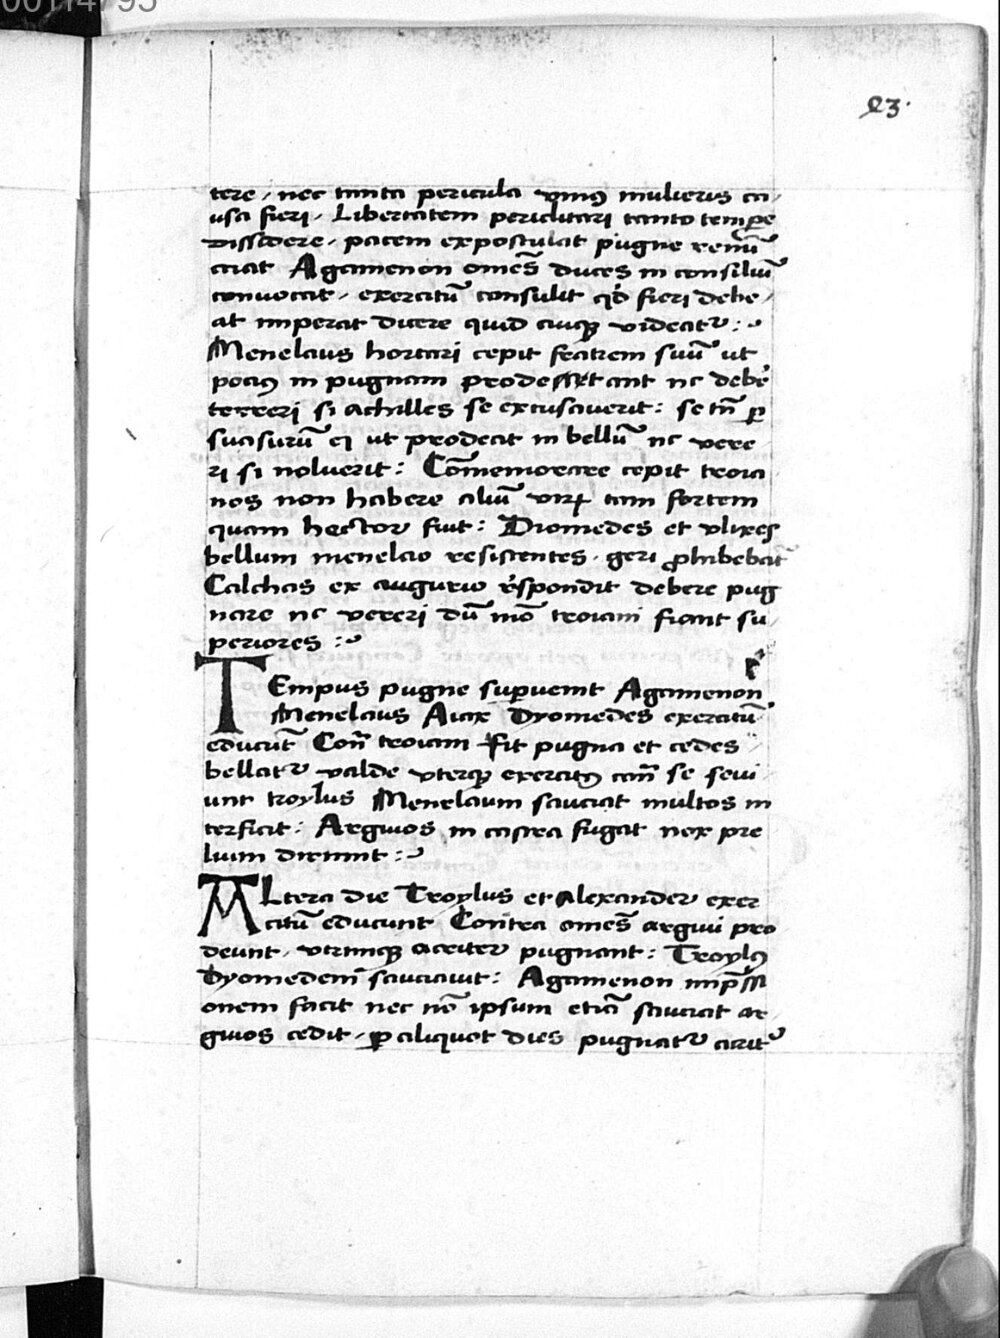 00114795
23.
tere, nec tanta pericula vniꝰ mulieris ca,
usa fieri, Libertatem periclitari tanto tempe
dissidere, pacem expostulat pugne renū
ciat Agamenon omēs duces in consiliū
convocat, exercitū consulit qd fieri debe,
at imperat dicere quid cuiqꝫ videatur :~
Menelaus hortari cepit fratrem suū ut
pociꝰ in pugnam prodessetant nc debe
terreri si achilles se excusaverit : se tn̄ ꝑ
suasurū ei ut prodeat in bellū nc vere
ri si noluerit : Cōmemorare cepit troia
nos non habere aliū virū tam fortem
quam hector fuit : Diomedes et vlixes
bellum menelao resistentes . geri ꝓhibebāt
Calchas ex augurio rspondit debere pug
nare nc vereri dū mō troiani fiant su,
periores :~
TEmpus pugne supuenit Agamenon
Menelaus Aiax Dyomedes exercitū
educūt Cont̄ troiam Fit pugna et cedes
bellatur valde vterqꝫ exercitꝰ cont̄ se sevi
unt troylus Menelaum sauciat multos in
terficit : Argiuos in castra fugat nox pre
lium dirimit :~
ALtera die Troylus et Alexander exer
citū educunt Contra omēs argiui pro
deunt, vtrimqꝫ acriter pugnant : Troylꝰ
Dyomedem sauciauit : Agamenon imp̄ssi
onem facit nec nō ipsum etiā sauciat ar,
giuos cedit, ꝑ aliquot dies pugnatur acrit